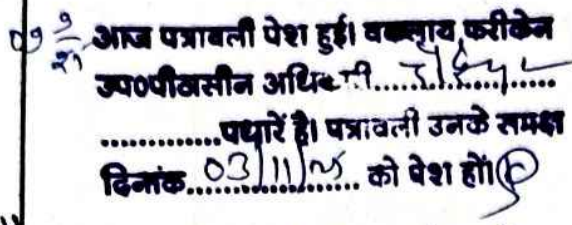 आज पत्रावली पेश हुई। वकलाय फरीकेन
उप0। पीठासीन अधिकारी....................
.............पधारें है। पत्रावली उनके समक्ष
दिनांक...03/11/25...... को पेश हों।